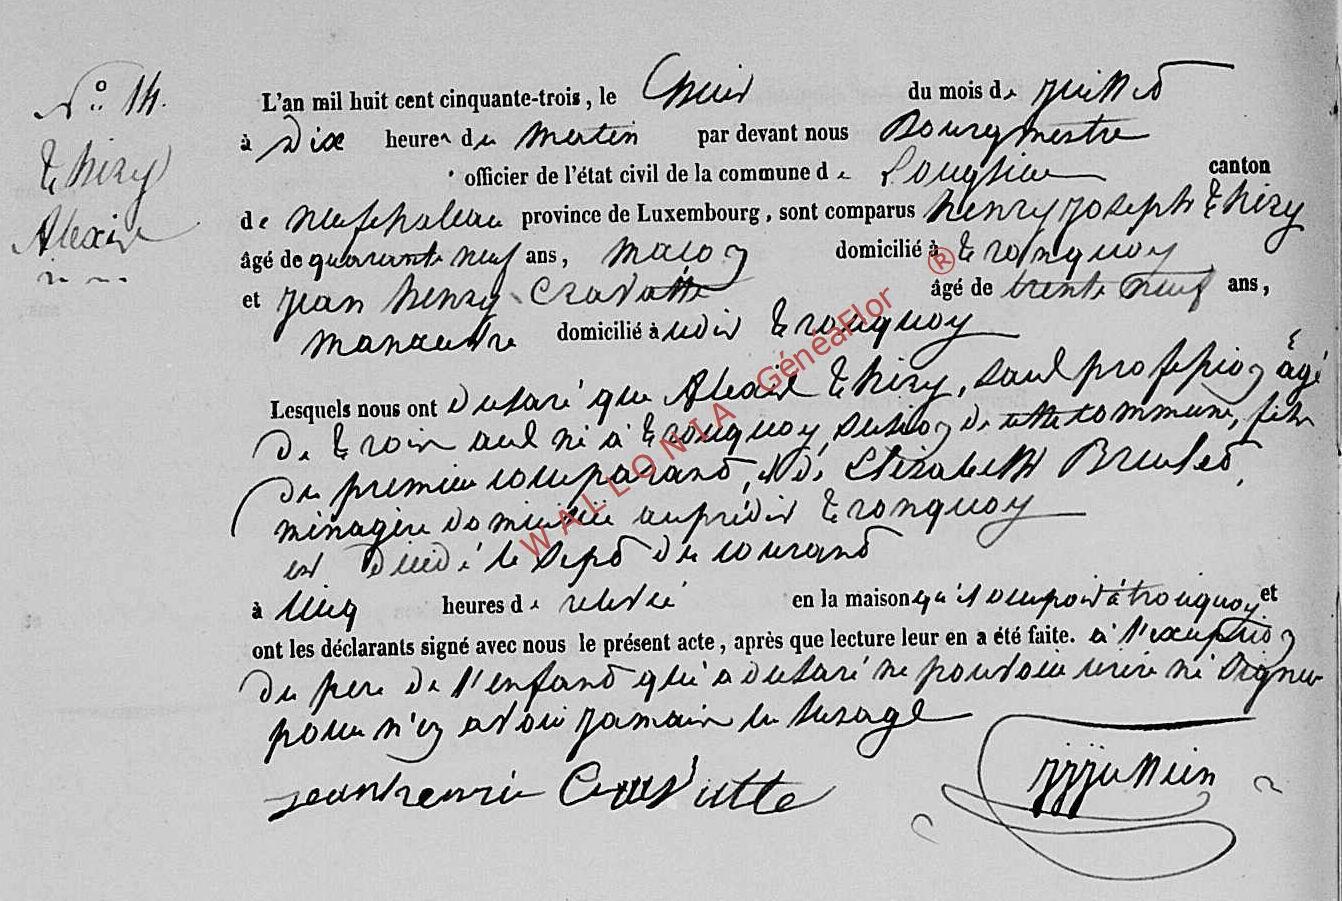 N° 14.
Thiry
Alexis
L'an mil huit cent cinquante-trois, le huit du mois de juillet
à Dix heures du matin par devant nous Bourgmestre
officier de l'état civil de la commune de Longlier canton
de neufchateau province de Luxembourg, sont comparus henry joseph Thiry
âgé de quarante neuf ans, maçon domicilié à Tronquoy
et jean henry Cravatte âgé de trente neuf ans,
manœuvre domicilié à udit Tronquoy
Lesquels nous ont declaré que Alexis Thiry, sans profession âgé
de trois ans né à Tronquoy, section de cette commune, fils
du premier comparant, et de Elizabeth
ménagère domiciliée au prédit Tronquoy
est décédé le sept du courant
à cinq heures de relevée en la maison qu'il occupoit à tronquoy et
ont les déclarants signé avec nous le présent acte, après que lecture leur en a été faite. à l'exception
du pere de l'enfant qui a declaré ne pouvoir ecrire ni signer
pour n'en avoir jamais eu lusage
jean henri Cravatte
WALLONIA GénéaFlor ®